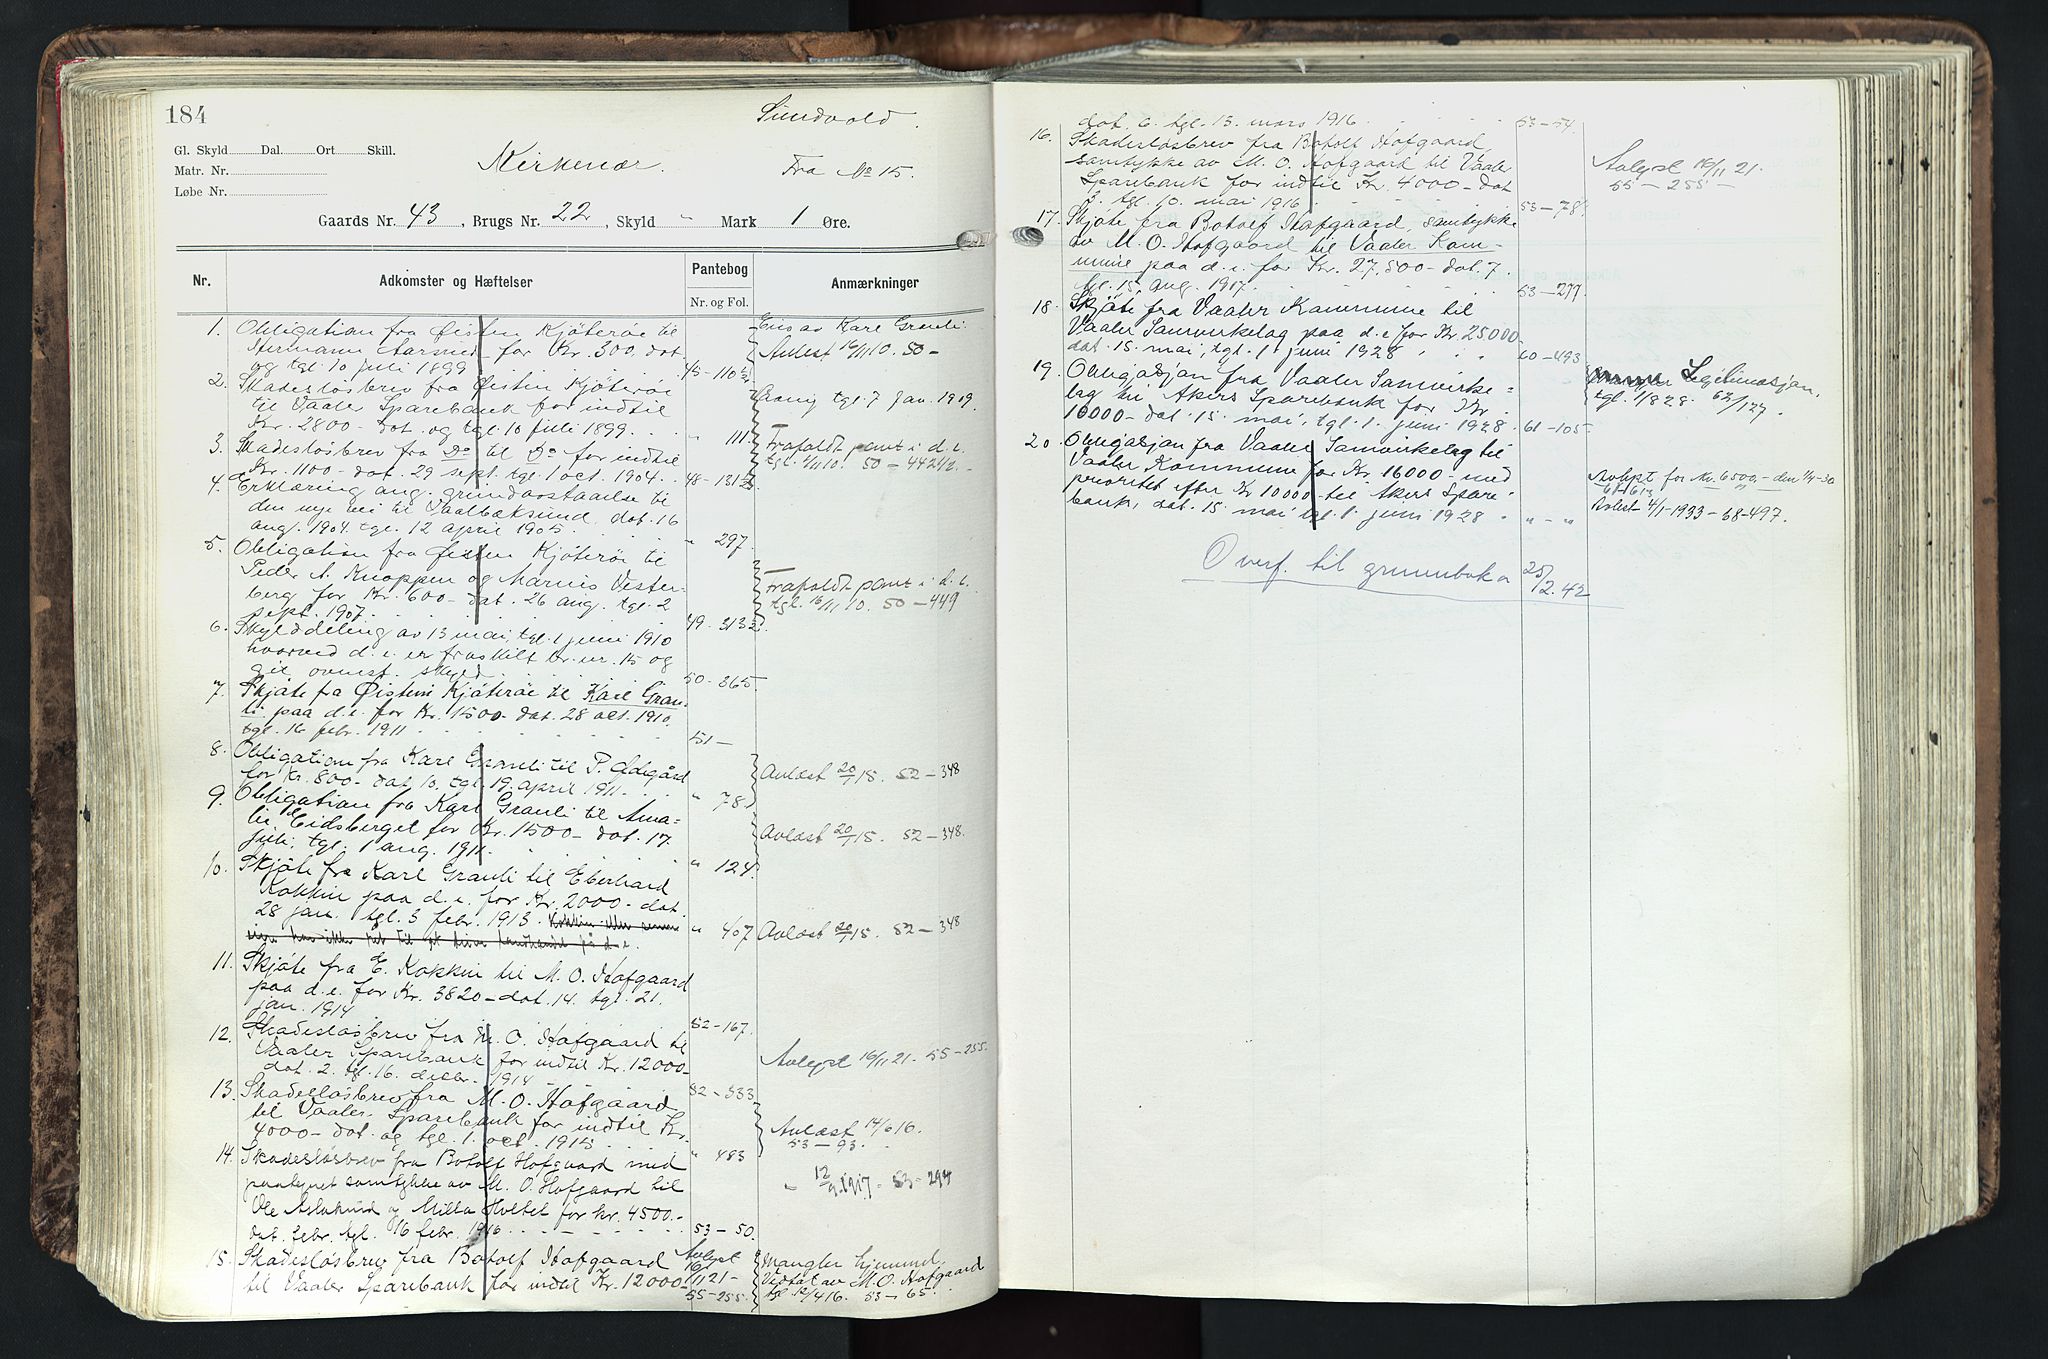 184
Sundvold.
Gl. Skyld Dal. Ort Skill.
Matr. Nr.
Løbe Nr.
Kirkenær.
Fra No 15.
Gaards Nr. 43, Brugs Nr. 22, Skyld " Mark 1 Øre.
Nr. Adkomster og Hæftelser Pantebog Nr. og Fol. Anmærkninger
1. Obligation fra Øistein Kjöteröi til
Hermann Aarsnes for Kr. 300, dat.
og tgl. 10 juli 1899 45-110½
Eies av Karl Granli
Avlest 16/11 10. 50-
2. Skadeslösbrev fra Øistin Kjöteröi
til Vaaler Sparebank for indtil
Kr. 2800- dat. og tgl. 10 juli 1899. " 111.
tgl. 7 jan. 1909.
3. Skadeslösbrev fra Do til Do for indtil
Kr. 1100- dat. 29 sept. tgl. 1 oct. 1904. 48-131½
Frafaldt pant i d. e.
tgl. 50-442½.
4. Erklæring ang. grundavstaaelse til
den nye vei til Vaalbæksund. dat. 16
aug. 1904. tgl. 12 april 1905 " 297.
5. Obligation fra Øistein Kjöteröi til
Peder A. Knappen og Marnis Vester-
berg for Kr. 600- dat. 26 aug. tgl. 2
sept. 1907. 49-313½
Frafaldt pant i d. e.
tgl. 16/11 10. 50-449
6. Skylddeling av 13 mai, tgl. 1 juni 1910
hvorved d. e. er fraskilt br. nr. 15 og
git ovenst. skyld. 50-365.
7. Skjöte fra Øistein Kjöteröi til Karl Gran-
li paa d. e. for Kr. 1500- dat. 28 oct. 1910,
tgl. 16 febr. 1911 51-
8. Obligation fra Karl Granli til P. Ødegård
for Kr. 800- dat. 10. tgl. 19. april 1911. " 78.
Avlæst 20/1 15. 52-348
9. Obligation fra Karl Granli til Ama-
lie Eidsberget for Kr. 1500- dat. 17.
juli, tgl. 1 aug. 1911. " 124.
Avlæst 20/1 15. 52-348.
10. Skjöte fra Karl Granli til Eberhard
Kokkin paa d. e. for Kr. 2000- dat.
28 jan. tgl. 3 febr. 1913. Kokkin eller senere
" 407
Avlæst 20/1 15. 52-348
11. Skjöte fra E. Kokkin til M. O. Hofgaard
paa d. e. for Kr. 3820- dat. 14. tgl. 21.
jan. 1914 52-167.
12. Skadeslösbrev fra M. O. Hofgaard til
Vaaler Sparebank for indtil Kr. 12000-
dat. 2. tgl. 16. decbr. 1914 52-333
Avlyst 16/11 21. 55-255.
13. Skadeslösbrev fra M. O. Hofgaard
til Vaaler Sparebank for indtil Kr.
4000- dat. og tgl. 1. oct. 1915 " 483
Avlæst 14/6 16.
53-93.
14. Skadeslösbrev fra Botolf Hofgaard med
paategnet samtykke av M. O. Hofgaard til
Ole Aslaksrud og Milla Holtet for kr. 4500.-
dat. febr. tgl. 16 febr. 1916 53-50.
" 12/9 1917. 53-294
15. Skadeslösbrev fra Botolf Hofgaard
til Vaaler Sparebank for indtil Kr. 12000-
Avlyst
16/11 21-
55-255.
Mangler hjemmel
Vedtat av M. O. Hofgaard
tgl. 12/4 16. 53-65.
dat. 6. tgl. 13. mars 1916. 53-54.
16. Skadeslösbrev fra Botolf Hofgaard,
samtykke av M. O. Hofgaard til Vaaler
Sparebank for indtil Kr. 4000- dat
3. tgl. 10. mai 1916. 53-78.
Avlyst 16/11 21.
55-255-
17. Skjöte fra Botolf Hofgaard, samtykke
av M. O. Hofgaard til Vaaler Kom-
mune paa d. e. for Kr. 27.500- dat. 7.
tgl. 15. aug. 1917. 53-277.
18. Skjöte fra Vaaler Kommune til
Vaaler Samvirkelag paa d. e. for Kr. 25000-
dat. 15. mai, tgl. 1. juni 1928 60-493
19. Obligasjon fra Vaaler Samvirke-
lag til Akers Sparebank for Kr.
10000- dat. 15. mai, tgl. 1. juni 1928. 61-105.
Legitimasjon,
tgl. 1/8 28. 62/127.
20. Obligasjon fra Vaaler Samvirkelag til
Vaaler Kommune for Kr. 16000- med
prioritet efter Kr 10000- til Akers Spare-
bank, dat. 15. mai tgl. 1. juni 1928. " - "
Avlyst for Kr. 6500,- den 1/4-30
61-613
Avlest 4/1-1933-68-497.
Overf. til grunnboka 25/2.42